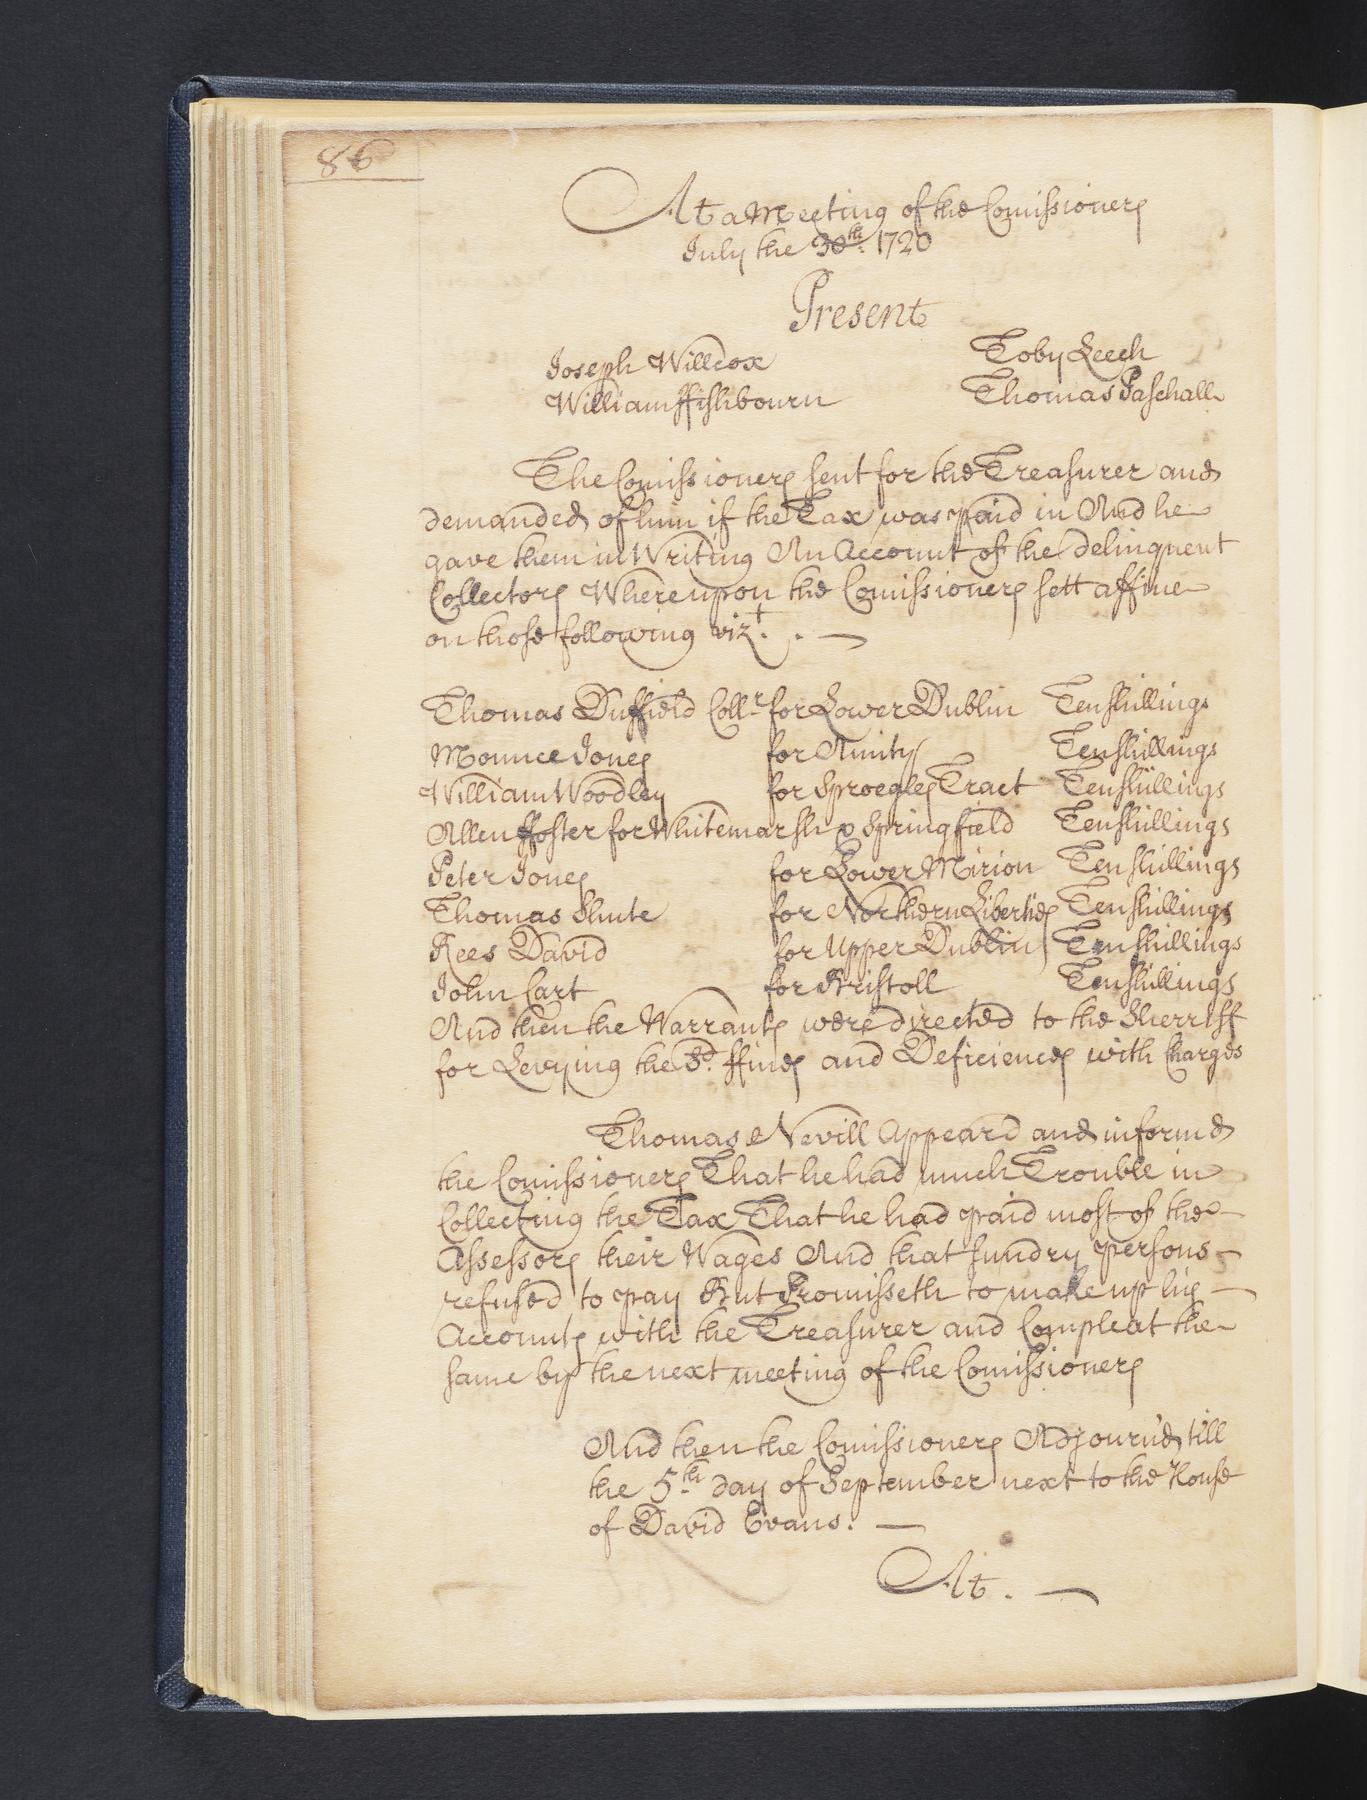 86
At a Meeting of the Comissioners
July the 30th. 1720
Present
Joseph Willcox Toby Leech
William ffishbourn Thomas Paschall
The Comissioners sent for the Treasurer and
demanded of him if the Tax was paid in And he
gave them in Writing An Account of the delinquent
Collectors Whereupon the Comissioners sett affine
on those following vizt. . —
Thomas Duffield Collr for Lower Dublin Ten shillings
Mounce Jones for Amity Ten shillings
William Woodley for Sproegles Tract Ten shillings
Allen ffoster for Whitemarsh & Springfield Ten shillings
Peter Jones for Lower Mirion Ten shillings
Thomas Shute for Northern Liberties Ten shillings
Rees David for Upper Dublin Ten shillings
John Cart for Bristoll Ten shillings
And then the Warrants were directed to the Sherriff
for Levying the Sd. ffines and Deficiences with Charges
Thomas Nevill Appeard and informd
the Comissioners That he had much Trouble in
Collecting the Tax That he had paid most of the —
Assessors their Wages And that sundry persons —
refused to pay But Promisseth to make up his —
Accounts with the Treasurer and Compleat the
same by the next meeting of the Comissioners
And then the Comissioners Adjourn'd till
the 5th day of September next to the House
of David Evans. —
At. —